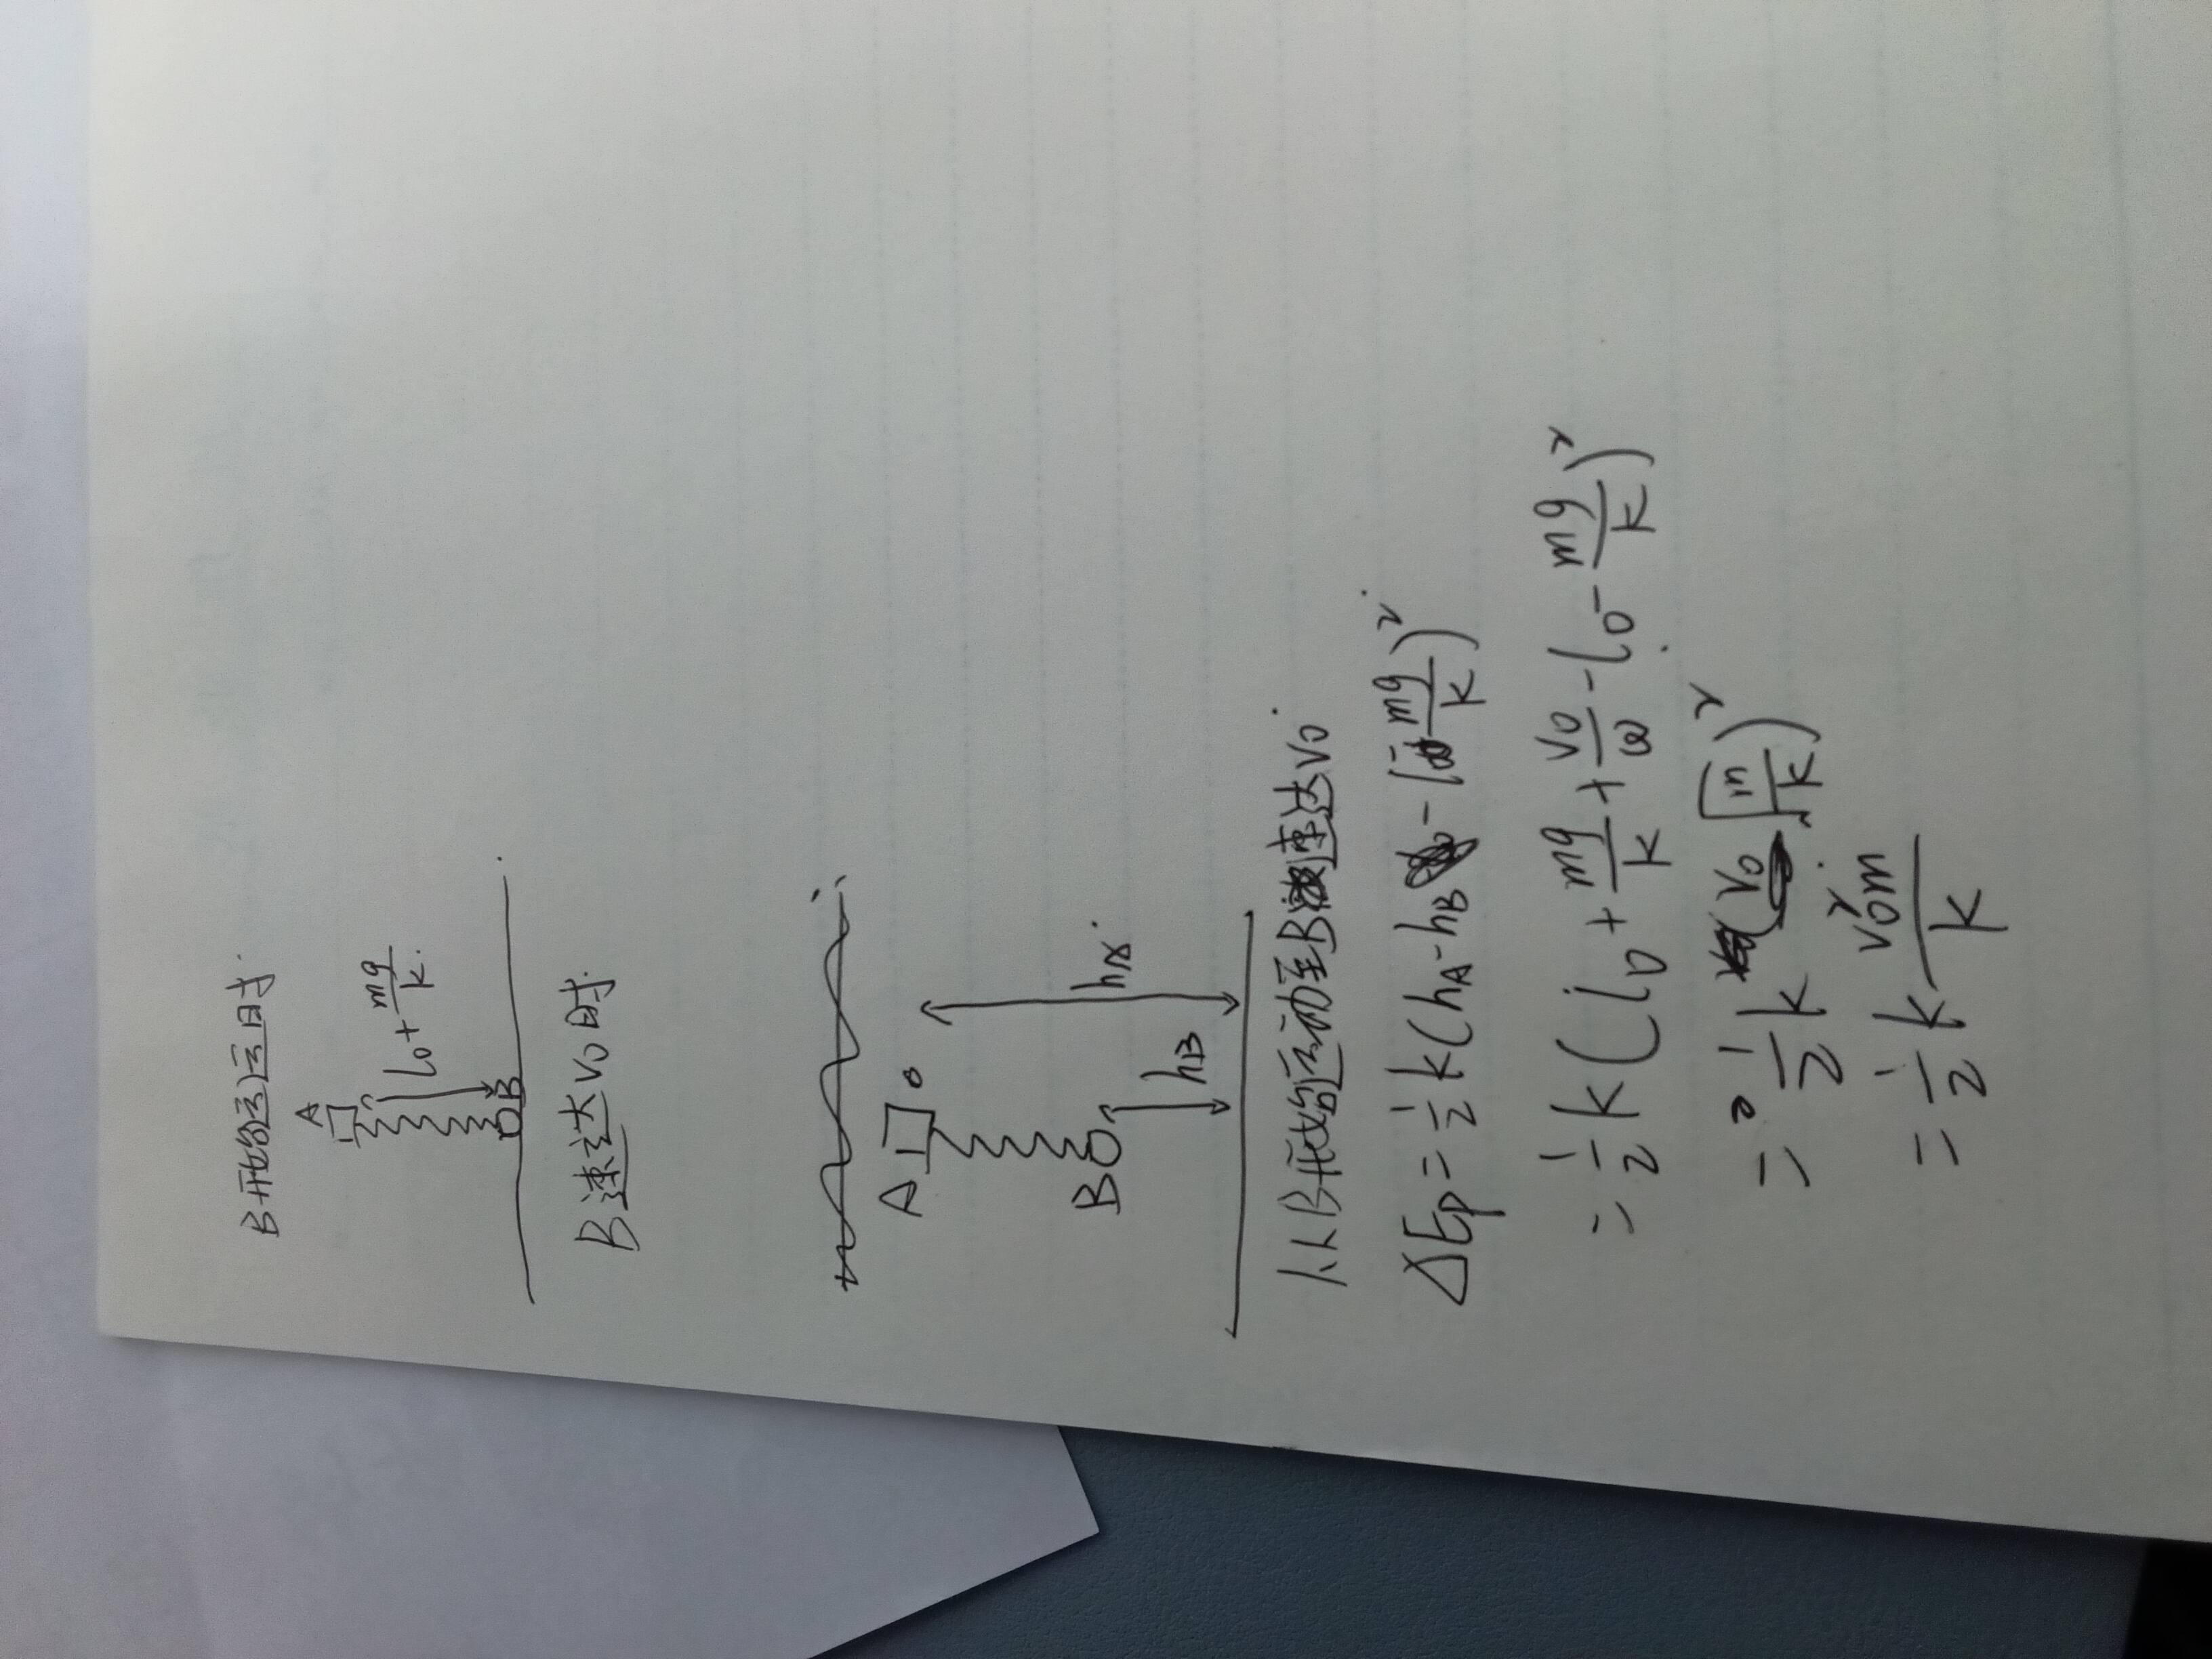 B开始运动时.
A
l₀+mg/k.
B
B速达v₀时.
A
hA
B
hB
从B开始运动至B速达v₀.
ΔEp=½k(hA-hB-l₀-mg/k)².
=½k(l₀+mg/k+v₀/ω-l₀-mg/k)²
=½k(v₀√(m/k))²
=½k v₀²m/k